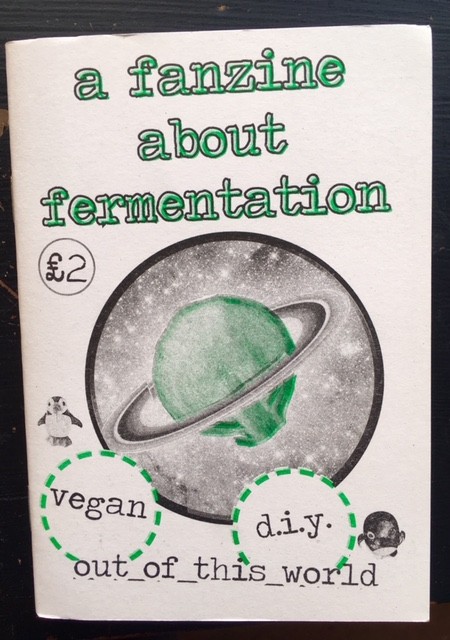 a fanzine
about
fermentation
£2
vegan
d.i.y.
out_of_this_world